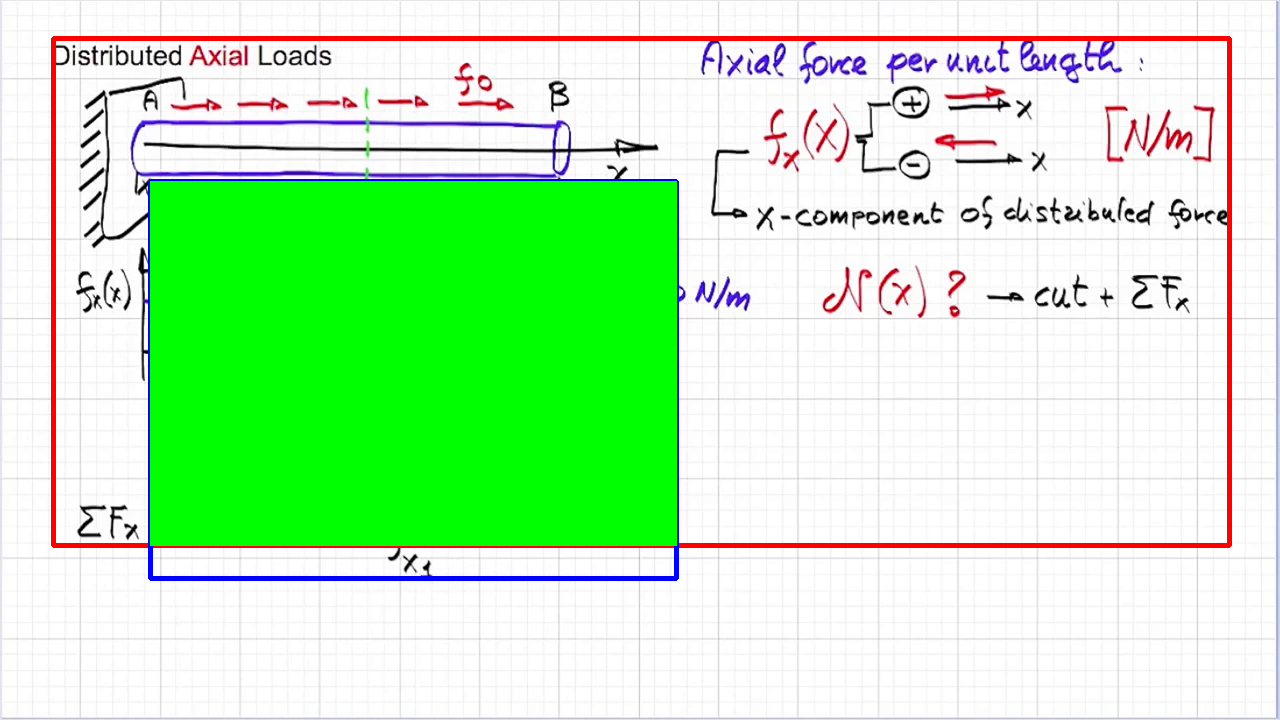 Distributed Axial Loads
Axial force per unit length :
A f0 B
x
fx(x) + x [N/m]
- x
x-component of distributed force
fx(x) N/m N(x) ? → cut + ΣFx
ΣFx
x1